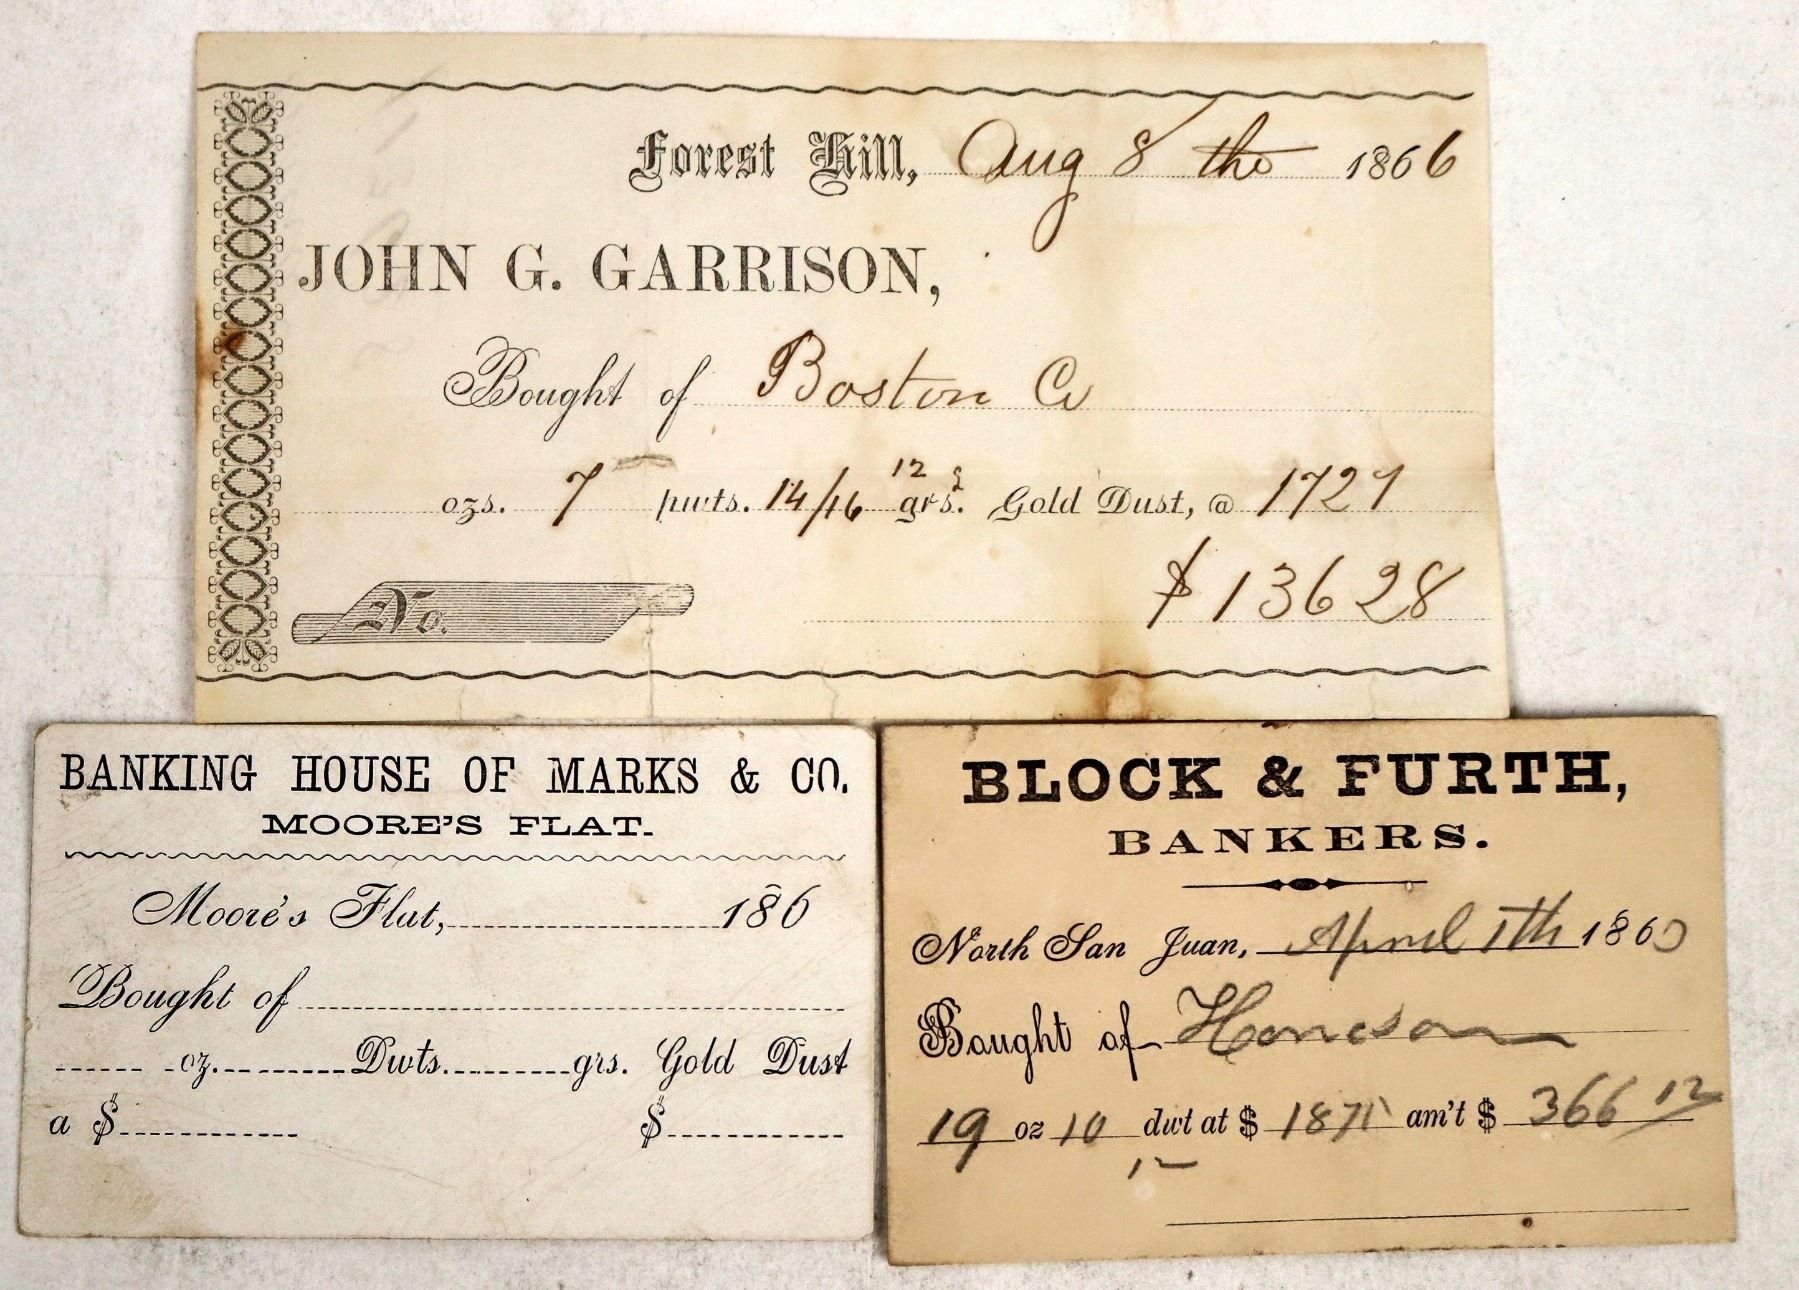 Forest Hill, Aug 8 the 1866
JOHN G. GARRISON,
Bought of Boston Co
ozs. 7 pwts. 14/16 12 grs. Gold Dust, @ 1727
$13628
No.
BANKING HOUSE OF MARKS & CO.
MOORE'S FLAT.
Moore's Flat, 186
Bought of
oz. Dwts. grs. Gold Dust
a $ $
BLOCK & FURTH,
BANKERS.
North San Juan, April 1860
Bought of
19 oz 10 dwt at $ 1875 am't $ 366 12
12